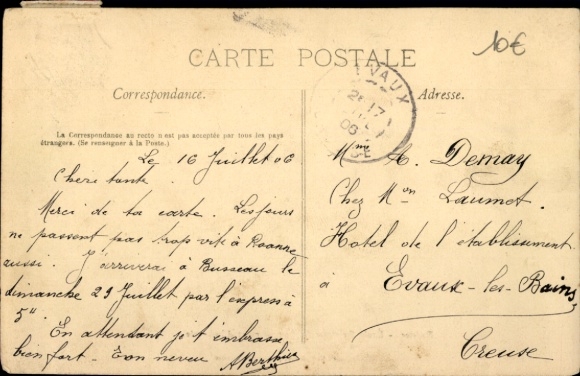 10€
CARTE POSTALE
Correspondance.
Adresse.
La Correspondance au recto n'est pas acceptée par tous les pays
étrangers. (Se renseigner à la Poste.)
Le 16 Juillet 06
Chère tante.
Merci de ta carte. Les jours
ne passent pas trop vite à Roanne
aussi. J'arriverai à Busseau le
dimanche 29 Juillet par l'express à
5h.
En attendant je t'embrasse
bien fort - Ton neveu
ABerthier
EVAUX
17
06
Mme A. Demay
Chez Mon Laumet.
Hotel de l'établissement
à Evaux-les-Bains
Creuse